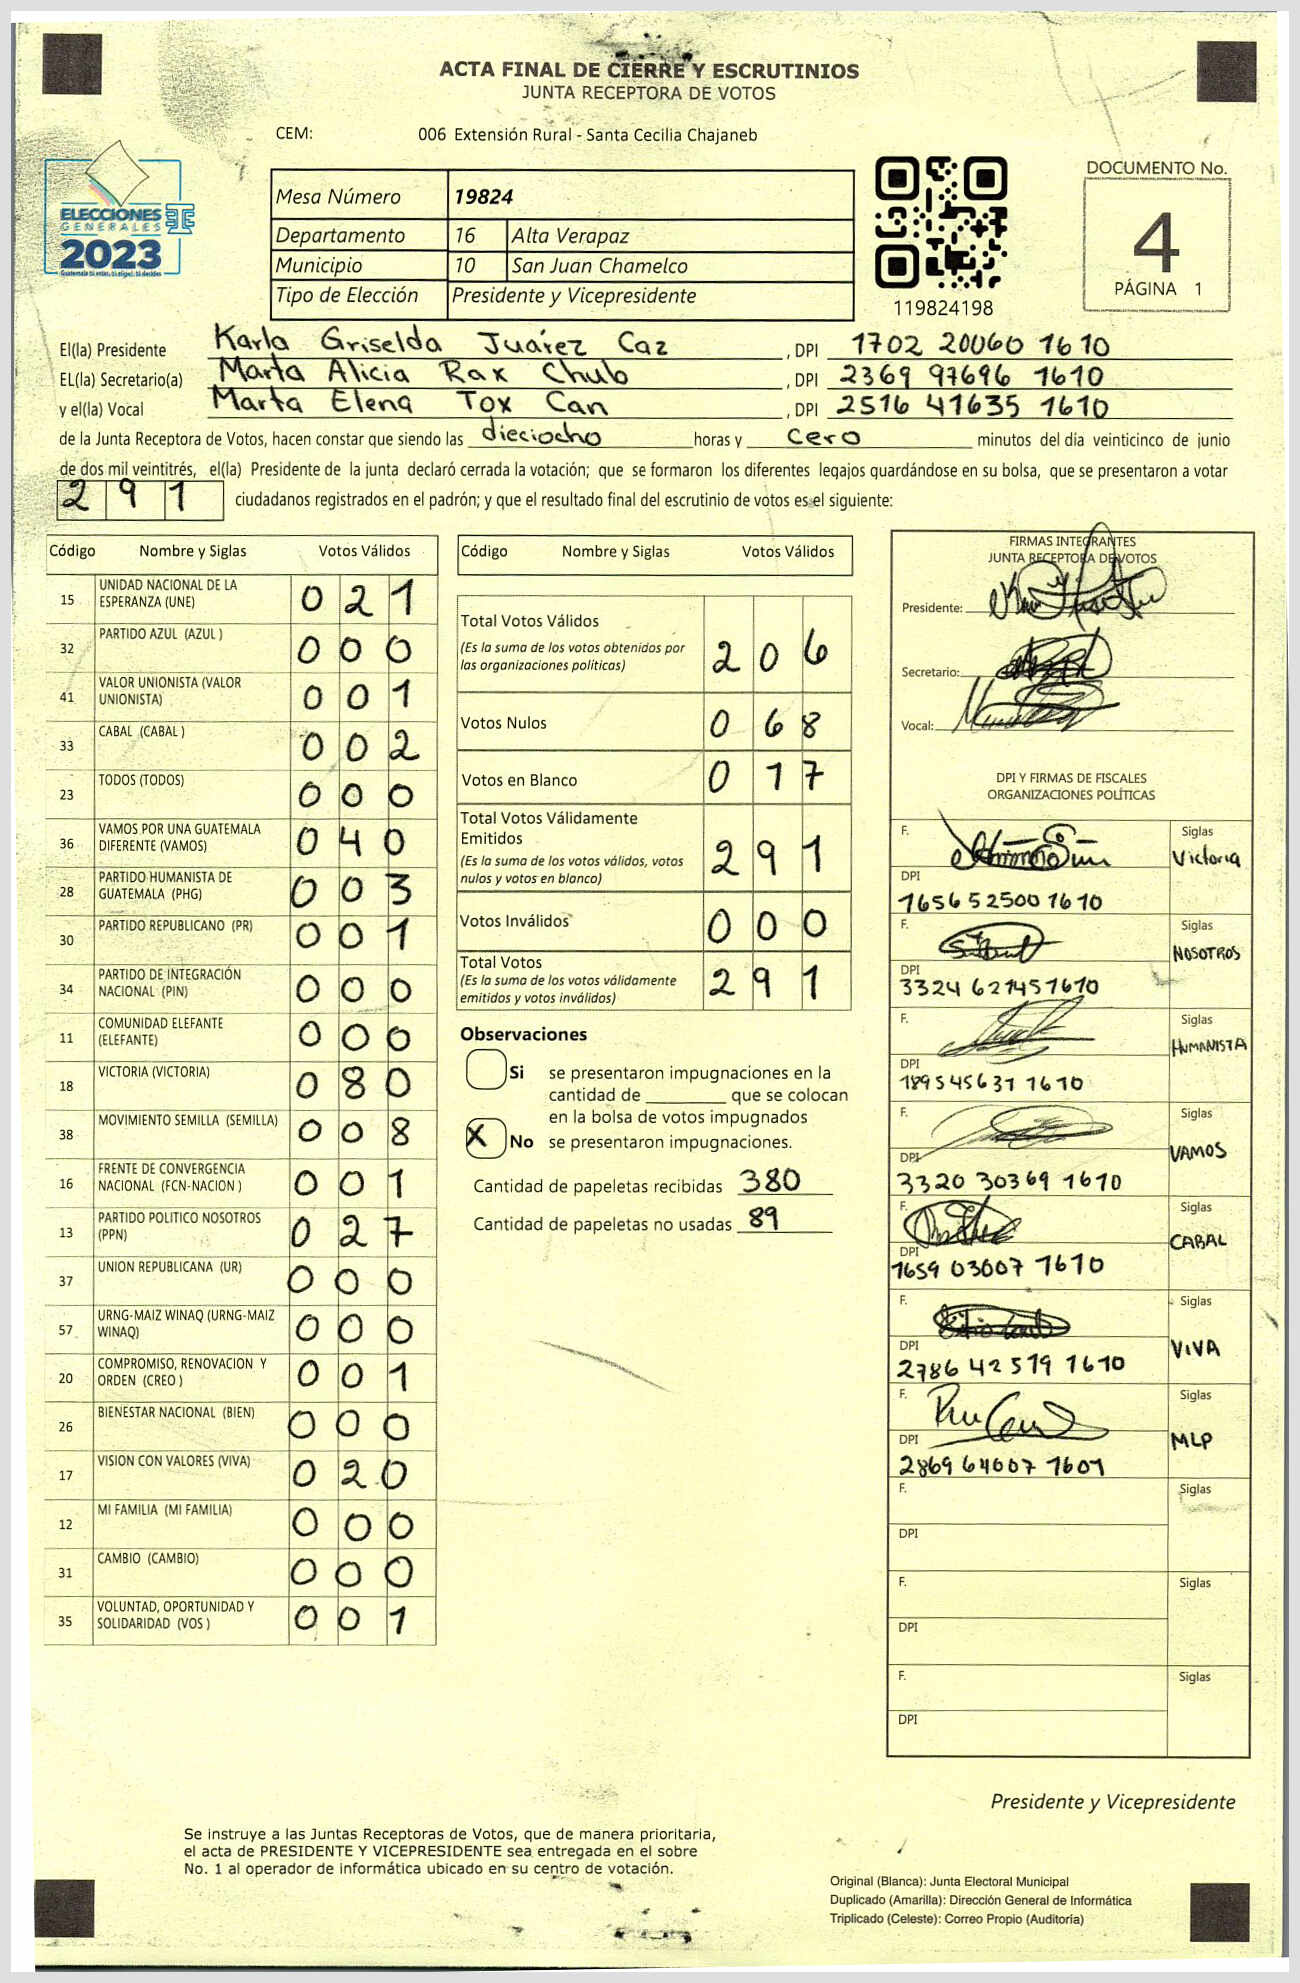 ACTA FINAL DE CIERRE Y ESCRUTINIOS
JUNTA RECEPTORA DE VOTOS
CEM: 006 Extensión Rural - Santa Cecilia Chajaneb
ELECCIONES
GENERALES
2023
Mesa Número 19824
Departamento 16 Alta Verapaz
Municipio 10 San Juan Chamelco
Tipo de Elección Presidente y Vicepresidente
119824198
DOCUMENTO No.
4
PÁGINA 1
El(la) Presidente Karla Griselda Juárez Caz, DPI 1702 20060 1610
EL(la) Secretario(a) Marta Alicia Rax Chub, DPI 2369 97696 1610
y el(la) Vocal Marta Elena Tox Can, DPI 2516 41635 1610
de la Junta Receptora de Votos, hacen constar que siendo las dieciocho horas y cero minutos del día veinticinco de junio
de dos mil veintitrés, el(la) Presidente de la junta declaró cerrada la votación; que se formaron los diferentes legajos guardándose en su bolsa, que se presentaron a votar
291 ciudadanos registrados en el padrón; y que el resultado final del escrutinio de votos es el siguiente:
Código Nombre y Siglas Votos Válidos
15 UNIDAD NACIONAL DE LA ESPERANZA (UNE) 021
32 PARTIDO AZUL (AZUL ) 000
41 VALOR UNIONISTA (VALOR UNIONISTA) 001
33 CABAL (CABAL ) 002
23 TODOS (TODOS) 000
36 VAMOS POR UNA GUATEMALA DIFERENTE (VAMOS) 040
28 PARTIDO HUMANISTA DE GUATEMALA (PHG) 003
30 PARTIDO REPUBLICANO (PR) 001
34 PARTIDO DE INTEGRACIÓN NACIONAL (PIN) 000
11 COMUNIDAD ELEFANTE (ELEFANTE) 000
18 VICTORIA (VICTORIA) 080
38 MOVIMIENTO SEMILLA (SEMILLA) 008
16 FRENTE DE CONVERGENCIA NACIONAL (FCN-NACION ) 001
13 PARTIDO POLITICO NOSOTROS (PPN) 027
37 UNION REPUBLICANA (UR) 000
57 URNG-MAIZ WINAQ (URNG-MAIZ WINAQ) 000
20 COMPROMISO, RENOVACION Y ORDEN (CREO ) 001
26 BIENESTAR NACIONAL (BIEN) 000
17 VISION CON VALORES (VIVA) 020
12 MI FAMILIA (MI FAMILIA) 000
31 CAMBIO (CAMBIO) 000
35 VOLUNTAD, OPORTUNIDAD Y SOLIDARIDAD (VOS ) 001
Código Nombre y Siglas Votos Válidos
Total Votos Válidos 206
(Es la suma de los votos obtenidos por
las organizaciones políticas)
Votos Nulos 068
Votos en Blanco 017
Total Votos Válidamente
Emitidos 291
(Es la suma de los votos válidos, votos
nulos y votos en blanco)
Votos Inválidos 000
Total Votos 291
(Es la suma de los votos válidamente
emitidos y votos inválidos)
Observaciones
Si se presentaron impugnaciones en la
cantidad de ________ que se colocan
en la bolsa de votos impugnados
X No se presentaron impugnaciones.
Cantidad de papeletas recibidas 380
Cantidad de papeletas no usadas 89
FIRMAS INTEGRANTES
JUNTA RECEPTORA DE VOTOS
Presidente:
Secretario:
Vocal:
DPI Y FIRMAS DE FISCALES
ORGANIZACIONES POLÍTICAS
F. Siglas Victoria
DPI 1656 52500 1610
F. Siglas NOSOTROS
DPI 3324 627451610
F. Siglas HUMANISTA
DPI 189545631 1610
F. Siglas VAMOS
DPI 3320 30369 1610
F. Siglas CABAL
DPI 1659 03007 1610
F. Siglas VIVA
DPI 2786 42519 1610
F. Siglas MLP
DPI 2869 64007 1601
F. Siglas
DPI
F. Siglas
DPI
F. Siglas
DPI
Presidente y Vicepresidente
Se instruye a las Juntas Receptoras de Votos, que de manera prioritaria,
el acta de PRESIDENTE Y VICEPRESIDENTE sea entregada en el sobre
No. 1 al operador de informática ubicado en su centro de votación.
Original (Blanca): Junta Electoral Municipal
Duplicado (Amarilla): Dirección General de Informática
Triplicado (Celeste): Correo Propio (Auditoría)